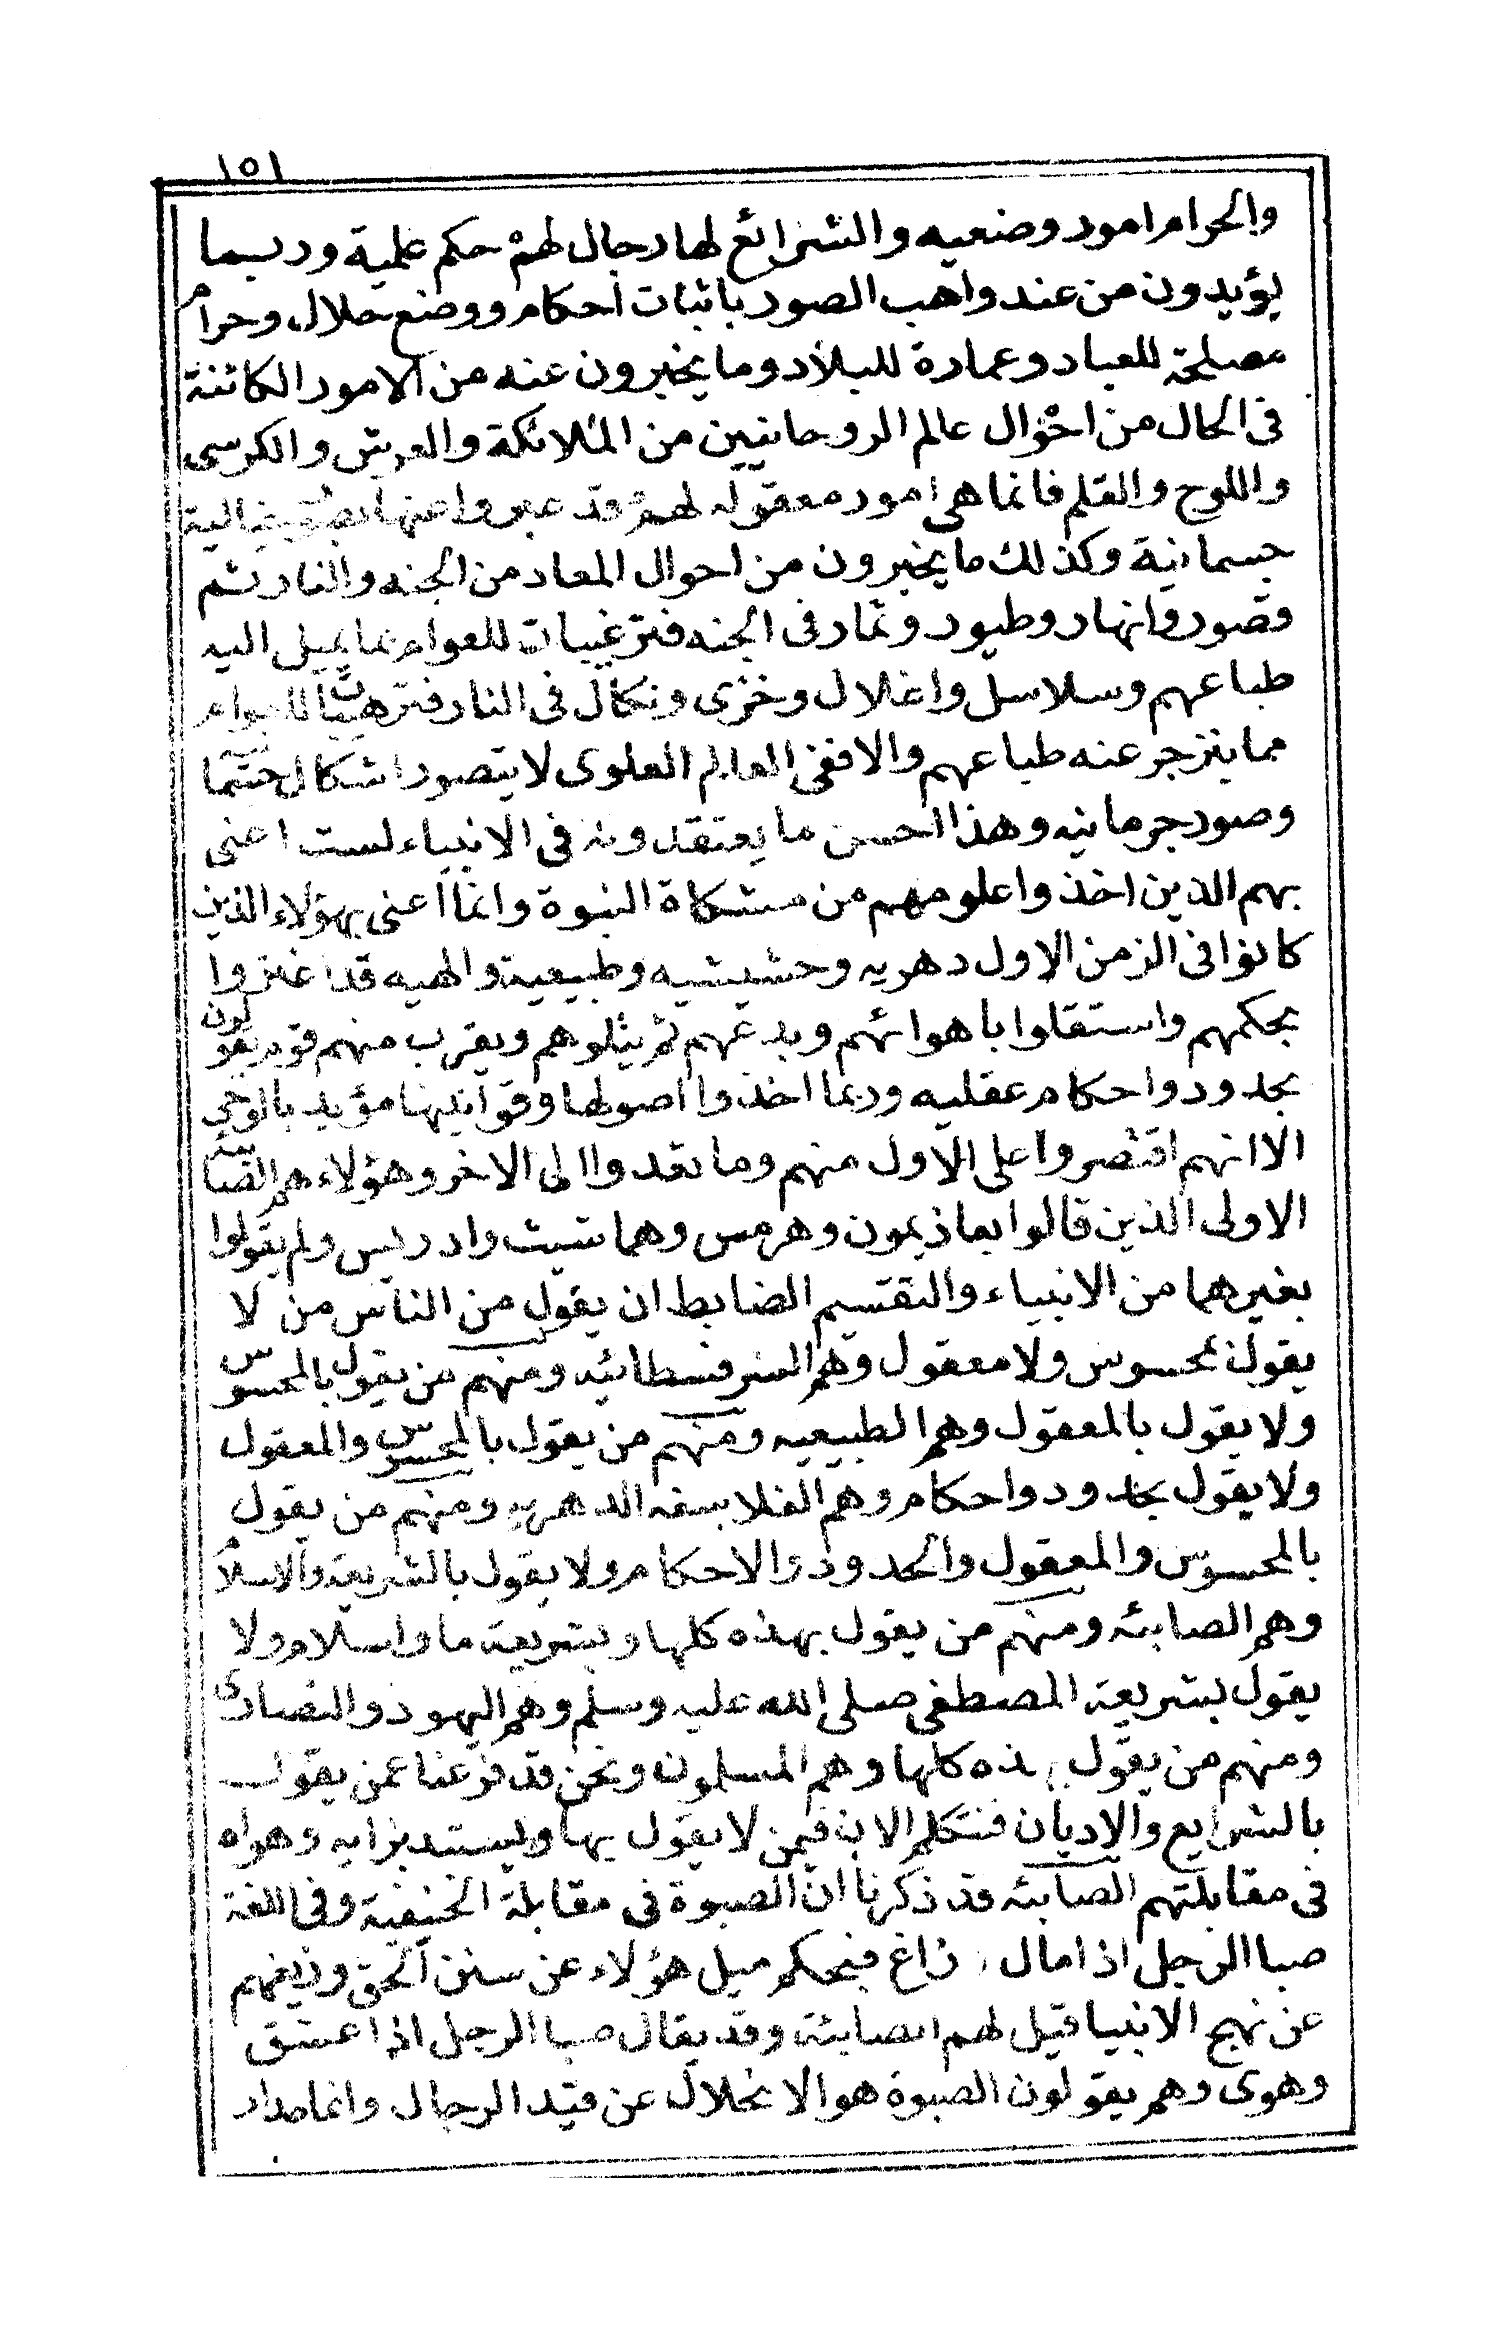 ١٥١
والحرام امور وضعيه والشرائع لها رجال لهم حكم علمية وربما
يؤيدون من عند واهب الصور باثبات احكام ووضع حلال وحرام
مصلحة للعباد وعمارة للبلاد وما يخبرون عنه من الامور الكائنة
فى الحال من احوال عالم الروحانيين من الملائكة والعرش والكرسى
واللوح والقلم فانما هى امور معقوله لهم وقد عبروا عنها بصور خيالية
جسمانية وكذلك ما يخبرون من احوال المعاد من الجنه والنار ثم
قصور وانهار وطيور وثمار فى الجنه فترغيبات للعوام بما يميل اليه
طباعهم وسلاسل واغلال وخزى ونكال فى النار فترهيبات للعوام
مما ينزجر عنه طباعهم والا ففى العالم العلوى لا يتصور اشكال جسمانية
وصور جرمانيه وهذا احسن ما يعتقدونه فى الانبياء لست اعنى
بهم الذين اخذوا علومهم من مشكاة النبوة وانما اعنى بهؤلاء الذين
كانوا فى الزمن الاول دهريه وحشيشيه وطبيعية والهيه قد اغتروا
بحكمهم واستقلوا باهوائهم وبدعهم ثم يتلوهم ويقرب منهم قوم يقولون
بحدود واحكام عقليه وربما اخذوا اصولها وقوانينها مؤيد بالوحى
الا انهم اقتصروا على الاول منهم وما تعدوا الى الاخر وهؤلاء هم الصابئة
الاولى الذين قالوا بعاذيمون وهرمس وهما شيث وادريس ولم يقولوا
بغيرهما من الانبياء والتقسيم الضابط ان يقول من الناس من لا
يقول بمحسوس ولا معقول وهم السوفسطائيه ومنهم من يقول بالمحسوس
ولا يقول بالمعقول وهم الطبيعيه ومنهم من يقول بالمحسوس والمعقول
ولا يقول بحدود واحكام وهم الفلاسفه الدهريه ومنهم من يقول
بالمحسوس والمعقول والحدود والاحكام ولا يقول بالشريعة والاسلام
وهم الصابئه ومنهم من يقول بهذه كلها وبشريعة ما واسلام ولا
يقول بشريعة المصطفى صلى الله عليه وسلم وهم اليهود والنصارى
ومنهم من يقول بهذه كلها وهم المسلمون ونحن قد فرغنا عمن يقول
بالشرايع والاديان فنتكلم الان فيمن لا يقول بها ويستبد برايه وهواه
فى مقابلتهم الصابئه قد ذكرنا ان الصبوة فى مقابلة الحنيفية وفى اللغة
صبا الرجل اذا مال وزاغ فبحكم ميل هؤلاء عن سنن الحق وزيغهم
عن نهج الانبيا قيل لهم الصابئة وقد يقال صبا الرجل اذا عشق
وهوى وهم يقولون الصبوة هو الانحلال عن قيد الرجال وانما مدار